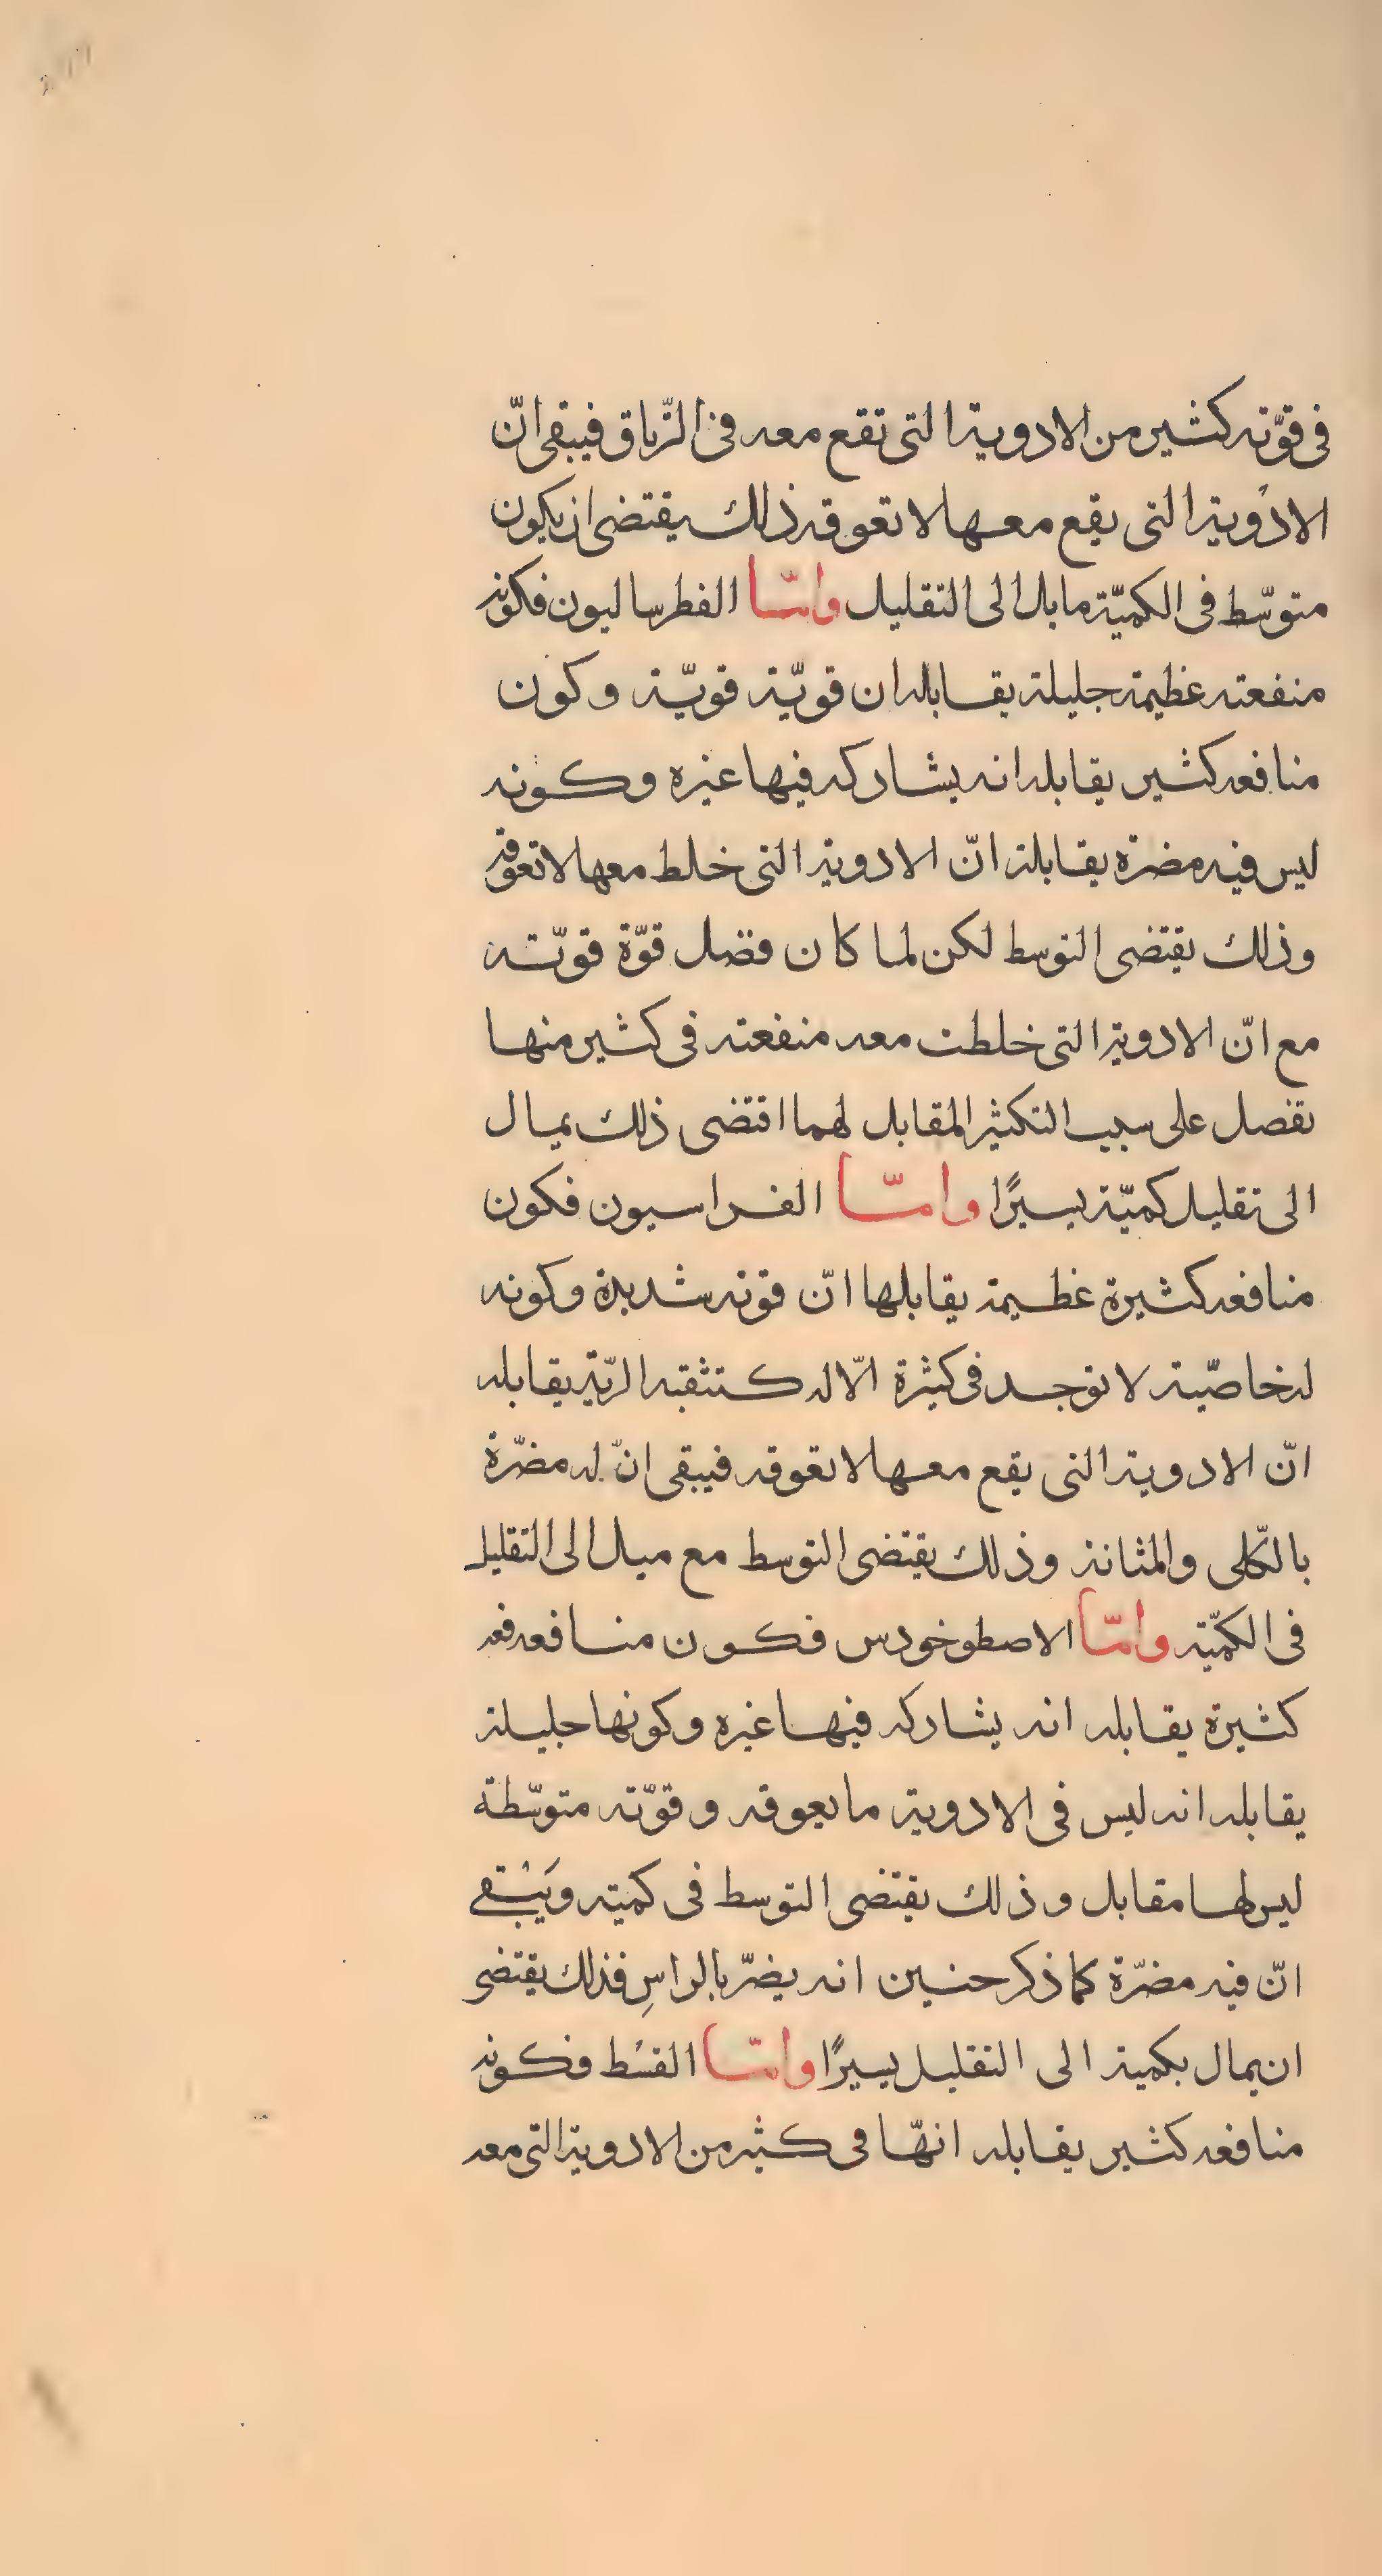 فى قوّته كثير من الادوية التى تقع معه فى الترياق فيبقى انّ
الادْوية التى يقع معها لا تعوقه ذلك يقتضى ان يكون
متوسّط فى الكميّة مايل الى التقليل وامّا الفطرساليون فكونه
منفعته عظيمة جليلة يقابله ان قويّة قويّة وكون
منافعه كثير يقابله انه يشاركه فيها غيره وكونه
ليس فيه مضرة يقابلة انّ الادوية التى خلط معها لا تعوقه
وذلك يقتضى التوسط لكن لما كان فضل قوّة قوّته
مع انّ الادوية التى خلطت معه منفعته فى كثير منها
تفضل على سبب التكثير المقابل لهما اقتضى ذلك يمال
الى تقليل كميّة يسيرًا وامّا الفراسيون فكون
منافعه كثيرة عظيمة يقابلها انّ قوته شديدة وكونه
له خاصّية لا توجد فى كثرة الّا له كتثقبه الريّة يقابله
انّ الادوية التى يقع معها لا تعوقه فيبقى انّ له مضرّة
بالكّلى والمثانة وذلك يقتضى التوسط مع ميال الى التقليل
فى الكميّة وامّا الاصطوخودس فكون منافعه فعه
كثيرة يقابله انه يشاركه فيها غيره وكونها جليلة
يقابله انه ليس فى الادوية ما يعوقه وقوّته متوسّطة
ليس لها مقابل وذلك يقتضى التوسط فى كميته ويَبْقى
انّ فيه مضرّة كما ذكر حنين انه يضرّ بالراسِ فذلك يقتضى
ان يمال بكمية الى التقليل يسيرًا وامّا القسْط فكونه
منافعه كثير يقابله انهّا فى كثير من الادوية التى معه